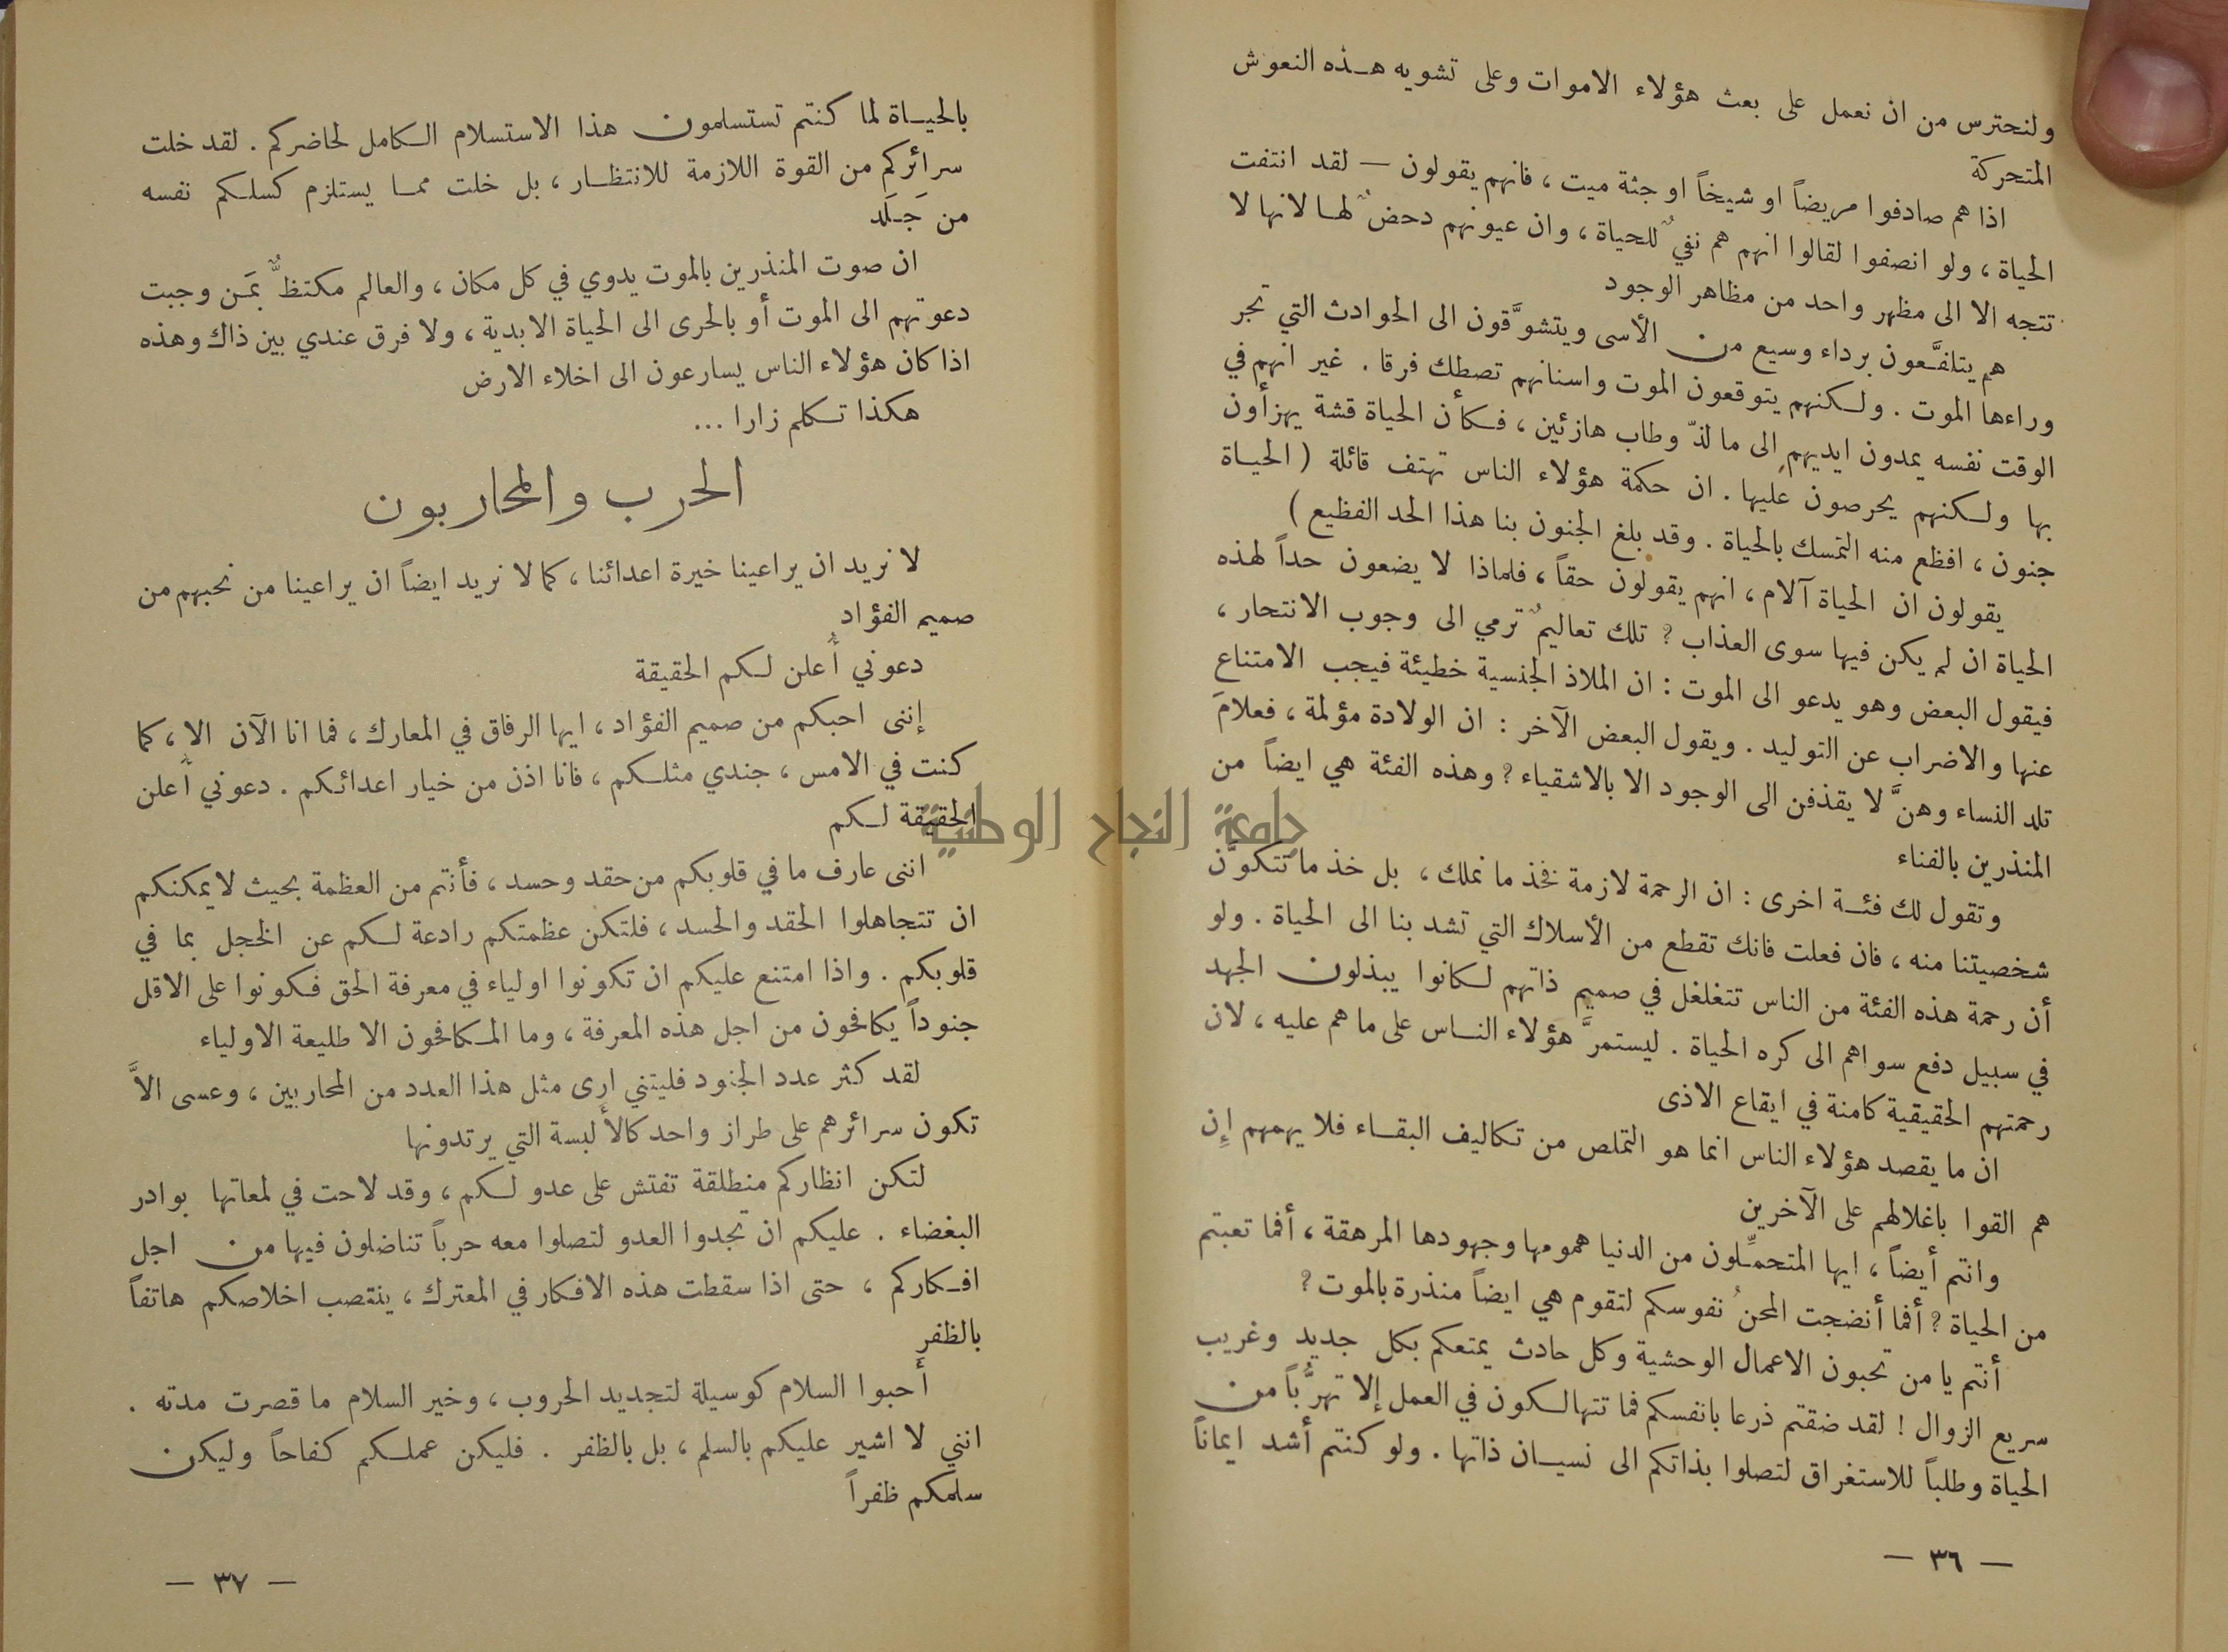 ولنحترس من ان نعمل على بعث هؤلاء الاموات وعلى تشويه هذه النعوش
المتحركة
اذا هم صادفوا مريضاً او شيخاً او جثة ميت ، فانهم يقولون — لقد انتفت
الحياة ، ولو انصفوا لقالوا انهم هم نفيٌ للحياة ، وان عيونهم دحضٌ لها لانها لا
تتجه الا الى مظهر واحد من مظاهر الوجود
هم يتلفَّعون برداء وسيع من الأسى ويتشوَّقون الى الحوادث التي تجر
وراءها الموت . ولكنهم يتوقعون الموت واسنانهم تصطك فرقا . غير انهم في
الوقت نفسه يمدون ايديهم الى ما لذّ وطاب هازئين ، فكأن الحياة قشة يهزأون
بها ولكنهم يحرصون عليها . ان حكمة هؤلاء الناس تهتف قائلة ( الحياة
جنون ، افظع منه التمسك بالحياة . وقد بلغ الجنون بنا هذا الحد الفظيع )
يقولون ان الحياة آلام ، انهم يقولون حقاً ، فلماذا لا يضعون حداً لهذه
الحياة ان لم يكن فيها سوى العذاب ؟ تلك تعاليمٌ ترمي الى وجوب الانتحار ،
فيقول البعض وهو يدعو الى الموت : ان الملاذ الجنسية خطيئة فيجب الامتناع
عنها والاضراب عن التوليد . ويقول البعض الآخر : ان الولادة مؤلمة ، فعلامَ
تلد النساء وهنَّ لا يقذفن الى الوجود الا بالاشقياء ؟ وهذه الفئة هي ايضاً من
المنذرين بالفناء
وتقول لك فئة اخرى : ان الرحمة لازمة فخذ ما نملك ، بل خذ ما تتكوَّن
شخصيتنا منه ، فان فعلت فانك تقطع من الأسلاك التي تشد بنا الى الحياة . ولو
أن رحمة هذه الفئة من الناس تتغلغل في صميم ذاتهم لكانوا يبذلون الجهد
في سبيل دفع سواهم الى كره الحياة . ليستمرَّ هؤلاء الناس على ما هم عليه ، لان
رحمتهم الحقيقية كامنة في ايقاع الاذى
ان ما يقصد هؤلاء الناس انما هو التملص من تكاليف البقاء فلا يهمهم إن
هم القوا باغلالهم على الآخرين
وانتم أيضاً ، ايها المتحمِّلون من الدنيا همومها وجهودها المرهقة ، أفما تعبتم
من الحياة ؟ أفما أنضجت المحنُ نفوسكم لتقوم هي ايضاً منذرة بالموت ؟
أنتم يا من تحبون الاعمال الوحشية وكل حادث يمتعكم بكل جديد وغريب
سريع الزوال ! لقد ضقتم ذرعا بانفسكم فما تتهالكون في العمل إلا تهرُّباً من
الحياة وطلباً للاستغراق لتصلوا بذاتكم الى نسيان ذاتها . ولو كنتم أشد ايماناً
— ٣٦ —
بالحياة لما كنتم تستسلمون هذا الاستسلام الكامل لحاضركم . لقد خلت
سرائركم من القوة اللازمة للانتظار ، بل خلت مما يستلزم كسلكم نفسه
من جَلَد
ان صوت المنذرين بالموت يدوي في كل مكان ، والعالم مكتظٌّ بمَن وجبت
دعوتهم الى الموت أو بالحرى الى الحياة الابدية ، ولا فرق عندي بين ذاك وهذه
اذا كان هؤلاء الناس يسارعون الى اخلاء الارض
هكذا تكلم زارا ...
الحرب والمحاربون
لا نريد ان يراعينا خيرة اعدائنا ، كما لا نريد ايضاً ان يراعينا من نحبهم من
صميم الفؤاد
دعوني أعلن لكم الحقيقة
إننى احبكم من صميم الفؤاد ، ايها الرفاق في المعارك ، فما انا الآن الا ، كما
كنت في الامس ، جندي مثلكم ، فانا اذن من خيار اعدائكم . دعوني أعلن
الحقيقة لكم
اننى عارف ما في قلوبكم من حقد وحسد ، فأنتم من العظمة بحيث لا يمكنكم
ان تتجاهلوا الحقد والحسد ، فلتكن عظمتكم رادعة لكم عن الخجل بما في
قلوبكم . واذا امتنع عليكم ان تكونوا اولياء في معرفة الحق فكونوا على الاقل
جنوداً يكافحون من اجل هذه المعرفة ، وما المكافحون الا طليعة الاولياء
لقد كثر عدد الجنود فليتني ارى مثل هذا العدد من المحاربين ، وعسى الاَّ
تكون سرائرهم على طراز واحد كالألبسة التي يرتدونها
لتكن انظاركم منطلقة تفتش على عدو لكم ، وقد لاحت في لمعاتها بوادر
البغضاء . عليكم ان تجدوا العدو لتصلوا معه حرباً تناضلون فيها من اجل
افكاركم ، حتى اذا سقطت هذه الافكار في المعترك ، ينتصب اخلاصكم هاتفاً
بالظفر
أحبوا السلام كوسيلة لتجديد الحروب ، وخير السلام ما قصرت مدته .
انني لا اشير عليكم بالسلم ، بل بالظفر . فليكن عملكم كفاحاً وليكن
سلمكم ظفراً
— ٣٧ —
جامعة النجاح الوطنية